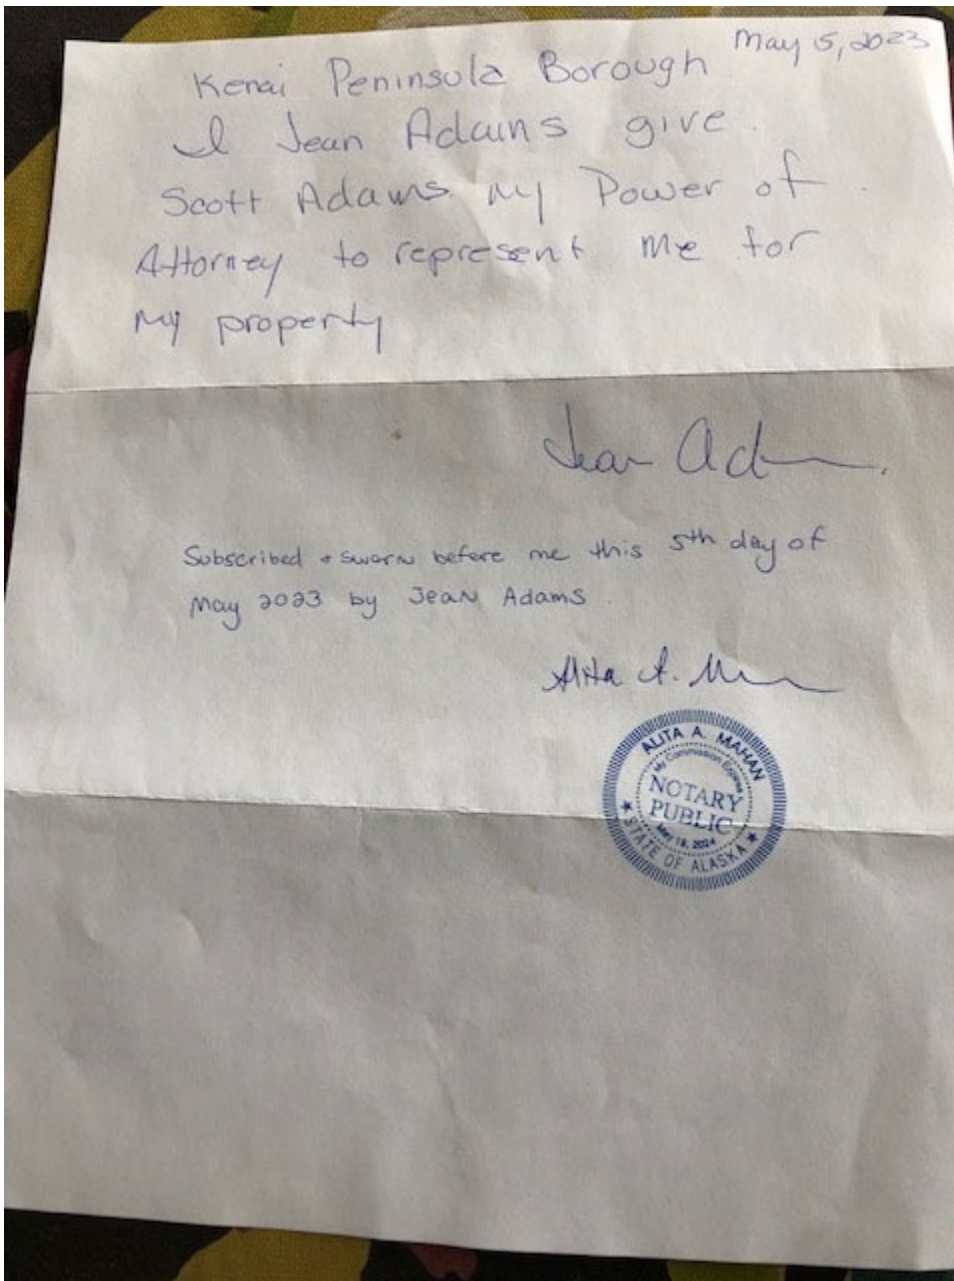 May 5, 2023
Kenai Peninsula Borough
I Jean Adams give
Scott Adams my Power of
Attorney to represent me for
my property
Jean Ad
Subscribed + sworn before me this 5th day of
May 2023 by Jean Adams.
Alita A. M
ALITA A. MAHAN
My Commission Expires
NOTARY
PUBLIC
19, 2024
STATE OF ALASKA